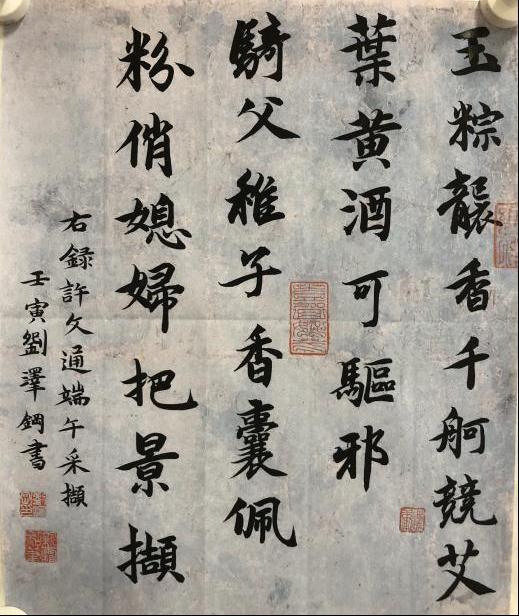 玉粽襲香千舸競艾
葉黄酒可驅邪
騎父稚子香囊佩
粉俏媳婦把景擷
右録許文通端午采擷
壬寅劉澤鋼書